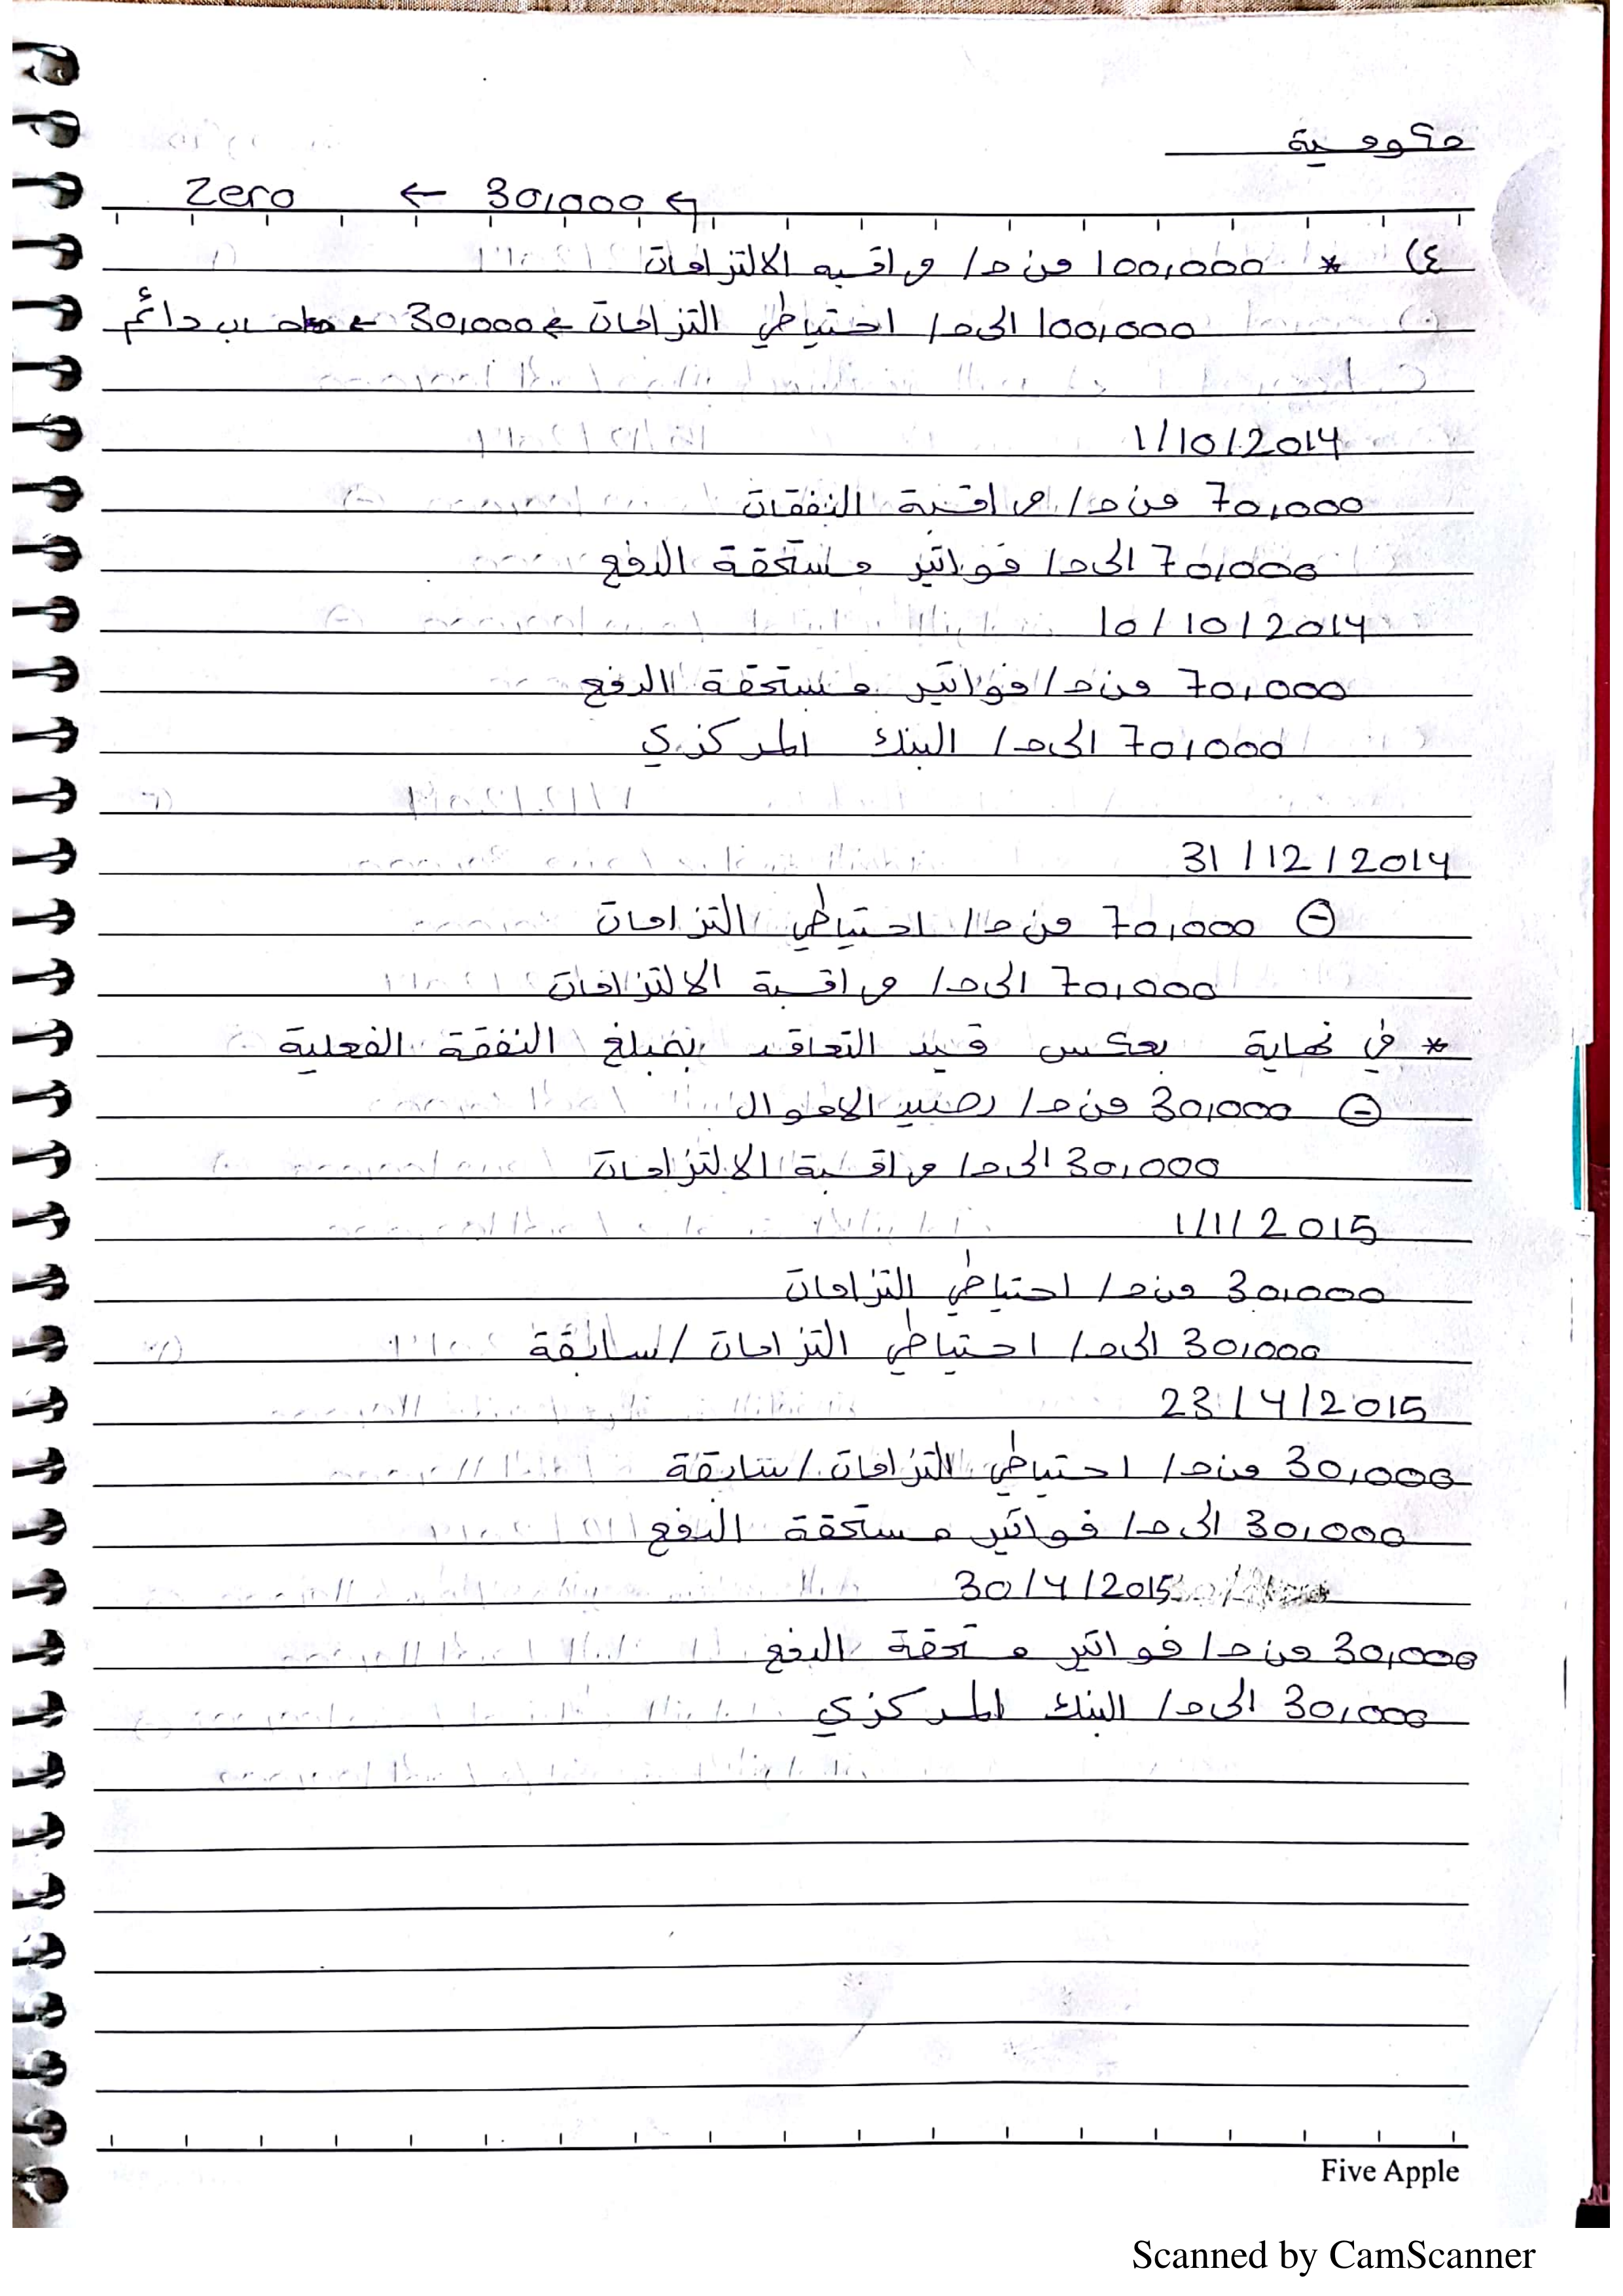 حكومية
Zero ← 30,000 ↰
٤) * 100,000 من ح/ مراقبه الالتزامات
100,000 الى ح/ احتياطي التزامات ← 30,000 ← حساب دائم
1/10/2014
70,000 من ح/ مراقبة النفقات
70,000 الى ح/ فواتير مستحقة الدفع
10/10/2014
70,000 من ح/ فواتير مستحقة الدفع
70,000 الى ح/ البنك المركزي
31/12/2014
⊖ 70,000 من ح/ احتياطي التزامات
70,000 الى ح/ مراقبة الالتزامات
* في نهاية بعكس قيد التعاقد بمبلغ النفقة الفعلية
⊖ 30,000 من ح/ رصيد الاموال
30,000 الى ح/ مراقبة الالتزامات
1/1/2015
30,000 من ح/ احتياطي التزامات
30,000 الى ح/ احتياطي التزامات/سابقة
23/4/2015
30,000 من ح/ احتياطي التزامات/سابقة
30,000 الى ح/ فواتير مستحقة الدفع
30/4/2015
30,000 من ح/ فواتير مستحقة الدفع
30,000 الى ح/ البنك المركزي
Five Apple
Scanned by CamScanner